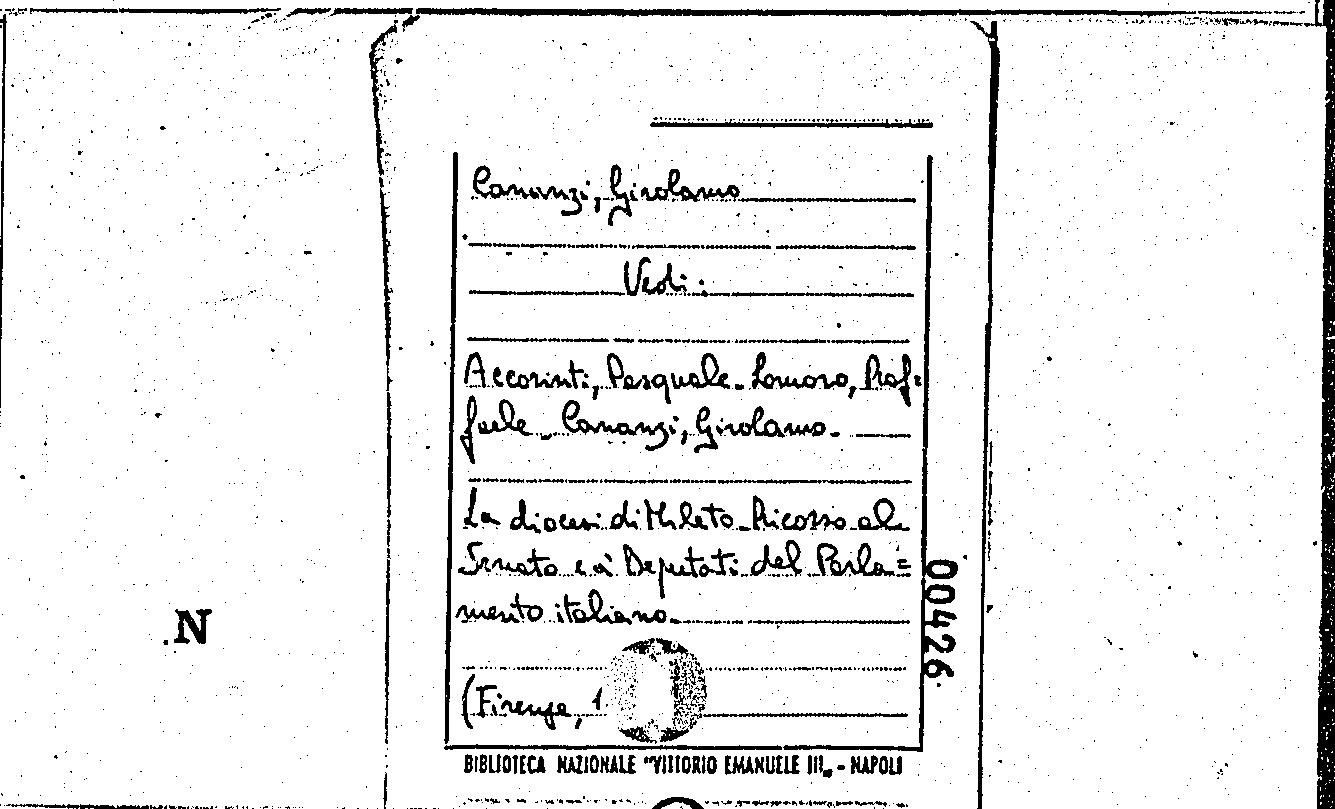 Cananzi, Girolamo
Vedi:
Accorinti, Pasquale - Lomoro, Raf=
faele - Cananzi, Girolamo.
La diocesi di Mileto - Ricorso al
Senato e a' Deputati del Parla=
mento italiano.
(Firenze, 1
00426
N
BIBLIOTECA NAZIONALE "VITTORIO EMANUELE III„ - NAPOLI